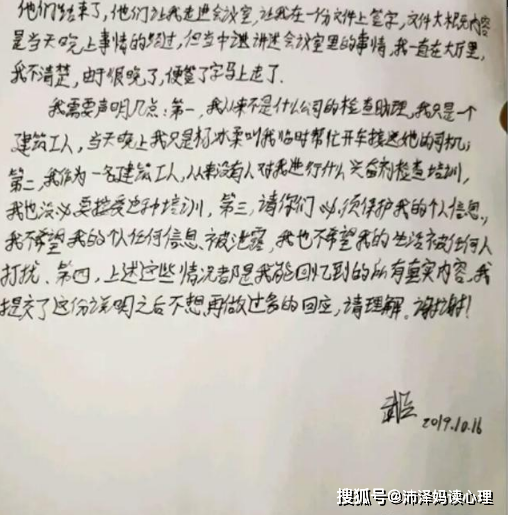 他们结束了，他们让我走进会议室，让我在一份文件上签字，文件大概是内容
是当天晚上事情的经过，但当中进讲述会议室里的事情，我一直在大厅里，
我不清楚，由于很晚了，便签了字马上走了．
我需要声明几点：第一，我从来不是什么公司的检查助理，我只是一个
建筑工人，当天晚上我只是杨冰柔叫我临时帮忙开车接送她的司机；
第二，我作为一名建筑工人，从来没有人对我进行什么兴奋剂检查培训，
我也没必要接受这种培训，第三，请你们必须保护我的个人信息，
我不希望我的个人任何信息被泄露，我也不希望我的生活被任何人
打扰．第四，上述这些情况都是我能回忆到的所有真实内容，我
提交了这份说明之后不想再做过多的回应，请理解。谢谢！
2019.10.16
搜狐号@沛泽妈读心理